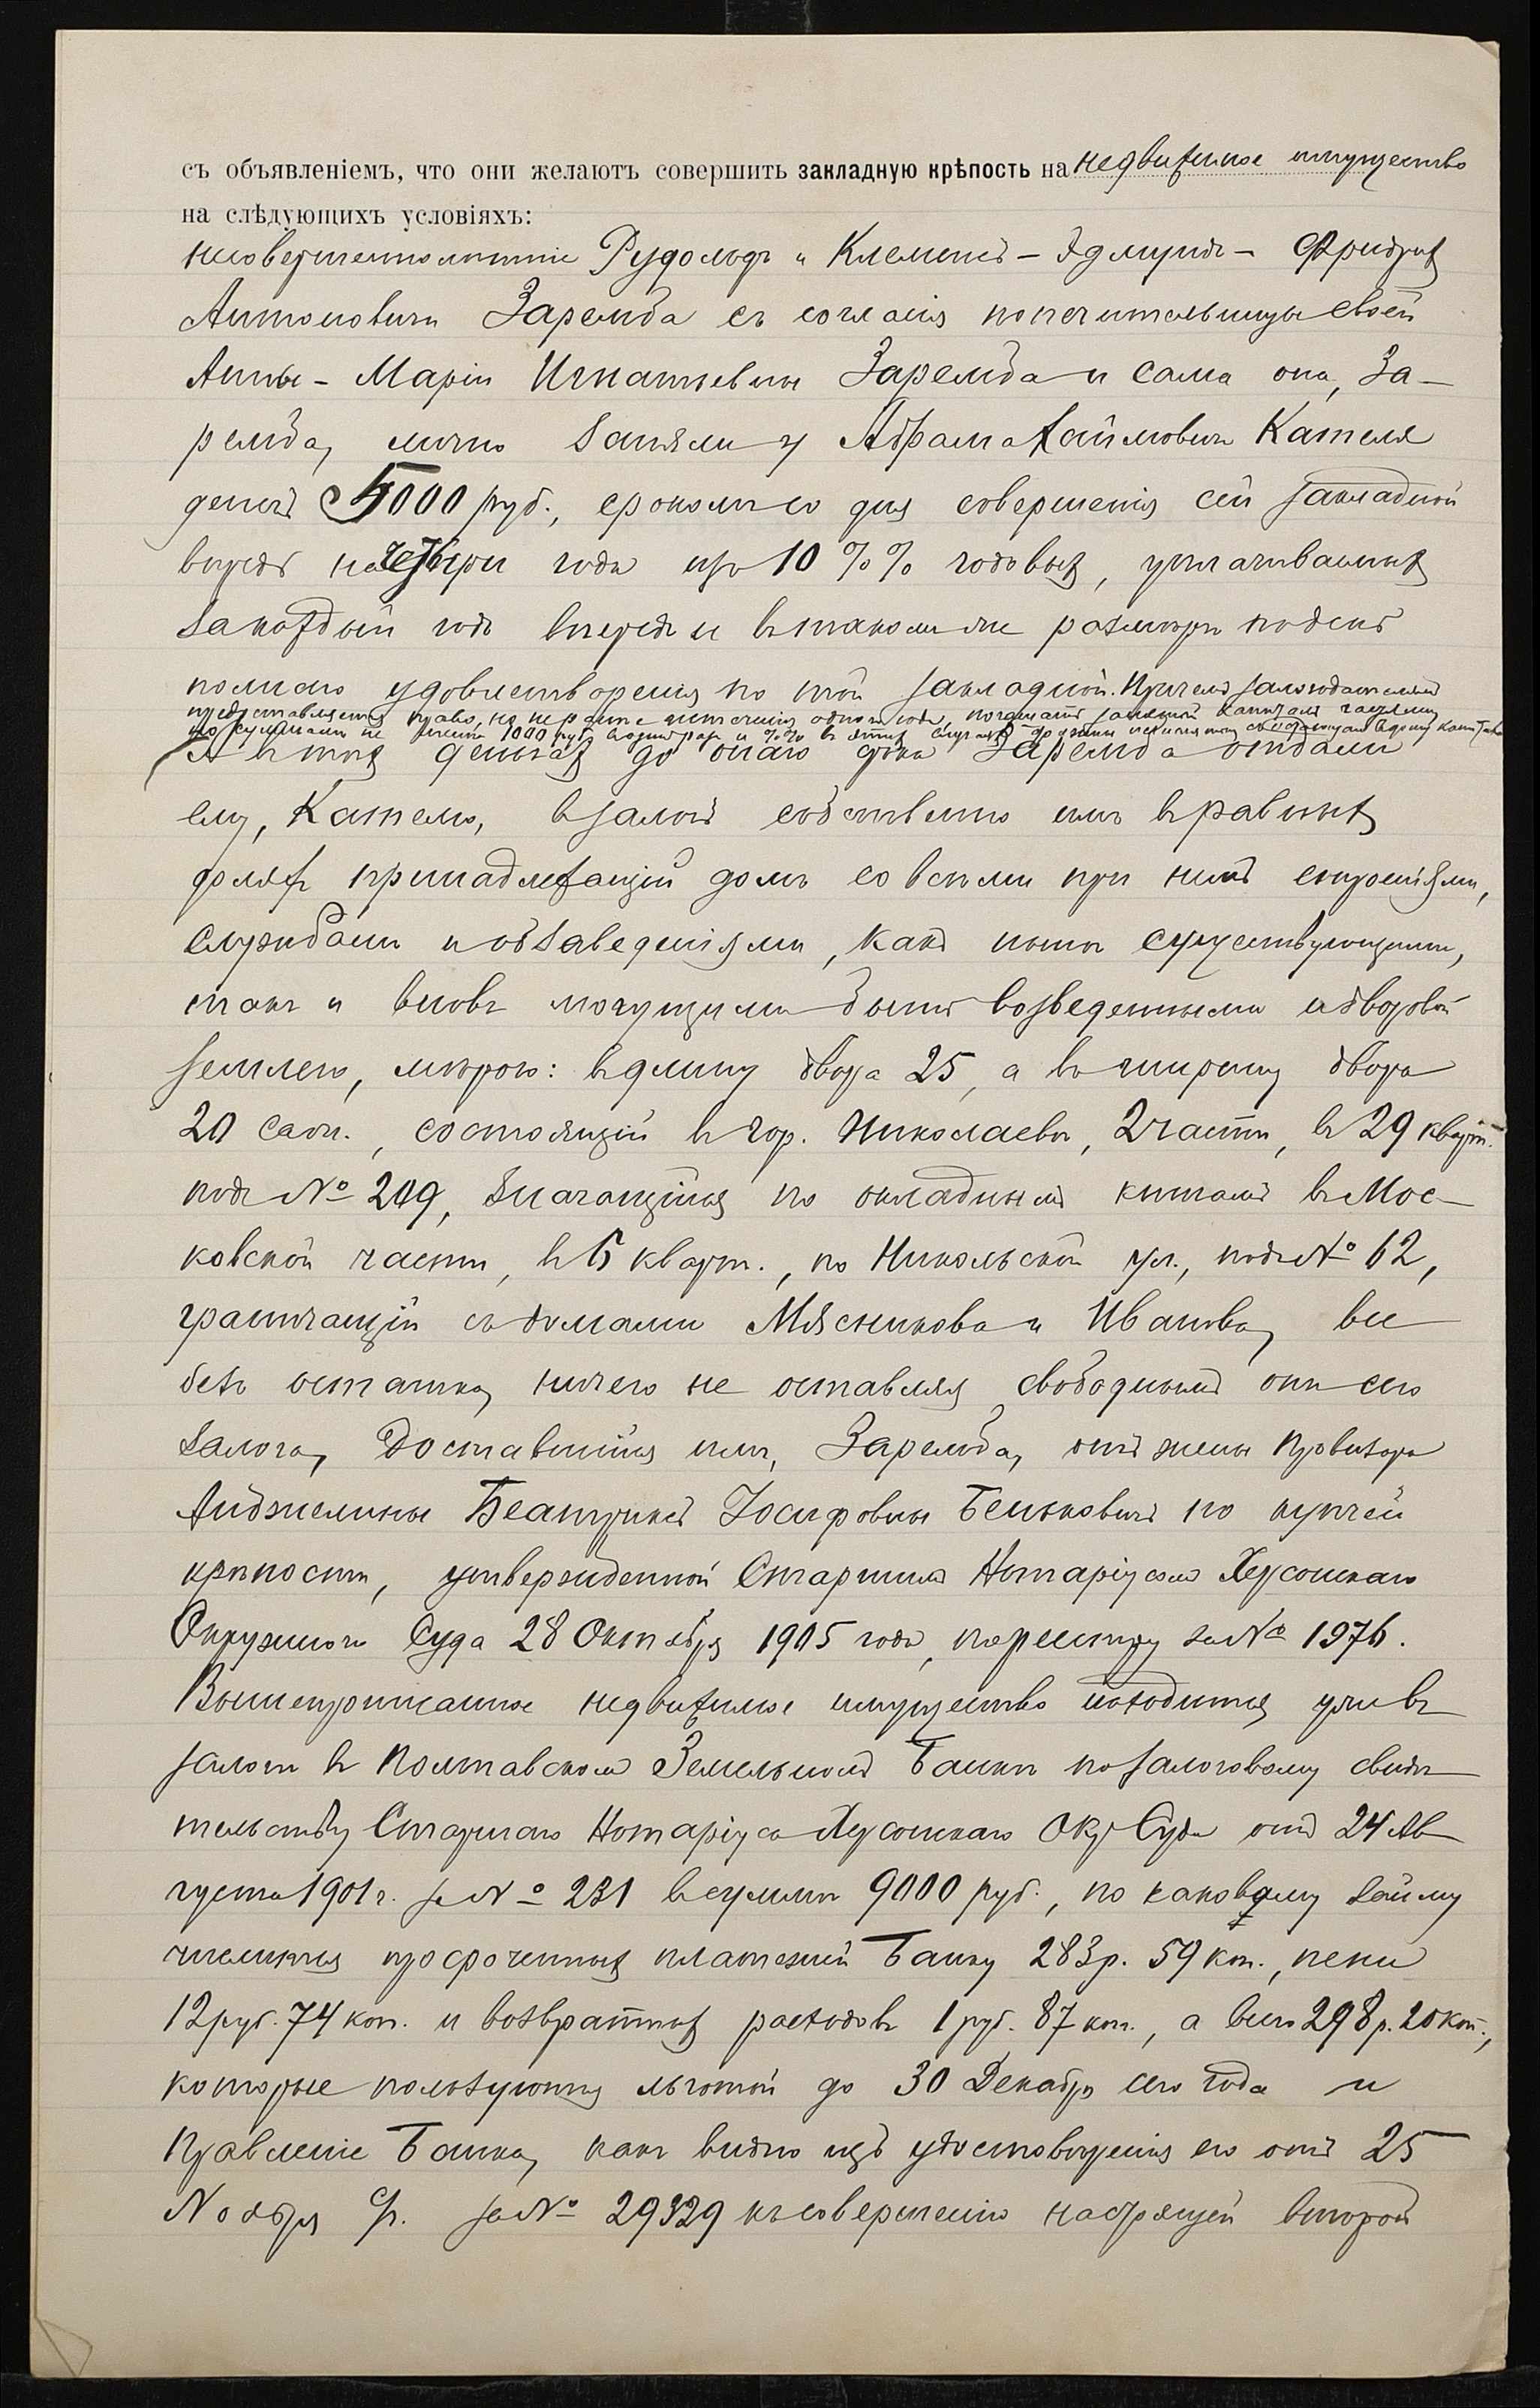 съ объявленіемъ, что они желаютъ совершить закладную крѣпость на недвижимое имущество
на слѣдующихъ условіяхъ:
несовершеннолѣтніе Рудольфъ и Клеменсъ-Эдмундъ-Фридрихъ
Антоновичи Заремба съ согласія попечительницы своей
Анны-Маріи Игнатьевны Заремба и сама она, За-
ремба, лично заняли у Абрама Хаимовича Кателя
денегъ 5000 руб., срокомъ со дня совершенія сей закладной
впредь на четыре года изъ 10 %% годовыхъ, уплачиваемыхъ
за каждый годъ впередъ и въ такомъ же размѣрѣ по день
полнаго удовлетворенія по этой закладной. Причемъ залогодателямъ
предоставляется право, но не ранѣе истеченія одного года, погашать занятый капиталъ частями
но суммами не менѣе 1000 руб. и %% въ этихъ случаяхъ должны исчисляться съ остающагося капитала
А въ тѣхъ деньгахъ до онаго срока Заремба отдали
ему, Кателю, въ залогъ собственно имъ въ равныхъ
доляхъ принадлежащій домъ со всѣми при немъ строеніями,
службами и обзаведеніями, какъ нынѣ существующими,
такъ и вновь могущими быть возведенными и дворовою
землею, мѣрою: въ длину двора 25, а въ ширину двора
20 саж., состоящій въ гор. Николаевѣ, 2 части, въ 29 кварт.
подъ № 209, значащійся по окладнымъ книгамъ въ Мос-
ковской части, въ 6 кварт., по Никольской ул., подъ № 62,
граничащій съ домами Мясникова и Иванова, все
безъ остатка, ничего не оставляя свободнымъ отъ сего
залога, доставшійся имъ, Заремба, отъ жены провизора
Анджелины Беатриксъ Іосифовны Беньковичъ по купчей
крѣпости, утвержденной Старшимъ Нотаріусомъ Херсонскаго
Окружного Суда 28 Октября 1905 года, по реестру за № 1976.
Вышеписанное недвижимое имущество находится уже въ
залогѣ въ Полтавскомъ Земельномъ Банкѣ по залоговому свидѣ-
тельству Старшаго Нотаріуса Херсонскаго Окр. Суда отъ 24 Ав-
густа 1901 г. за № 231 въ суммѣ 9000 руб., по каковому займу
числится просроченныхъ платежей Банку 283 р. 59 коп., пени
12 руб. 74 коп. и возвратныхъ расходовъ 1 руб. 87 коп., а всего 298 р. 20 коп.,
которые пользуются льготой до 30 Декабря сего года и
Правленіе Банка, какъ видно изъ удостовѣренія его отъ 25
Ноября с/г. за № 29329 къ совершенію настоящей второй